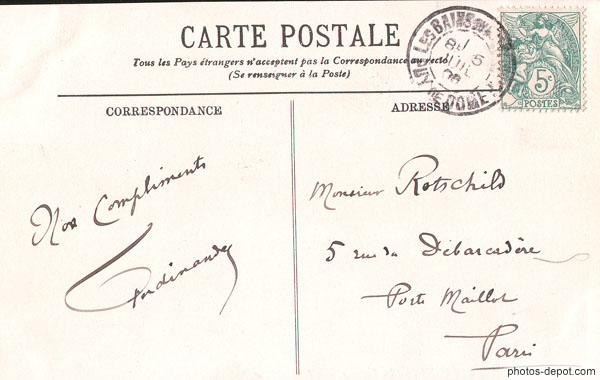 CARTE POSTALE
Tous les Pays étrangers n'acceptent pas la Correspondance au recto
(Se renseigner à la Poste)
CORRESPONDANCE
ADRESSE
LES BAINS
PUY DE DOME
5
08
5c
POSTES
Nos Compliments
Ferdinandy
Monsieur Rotschild
5 rue du Débarcadère
Porte Maillot
Paris
photos-depot.com